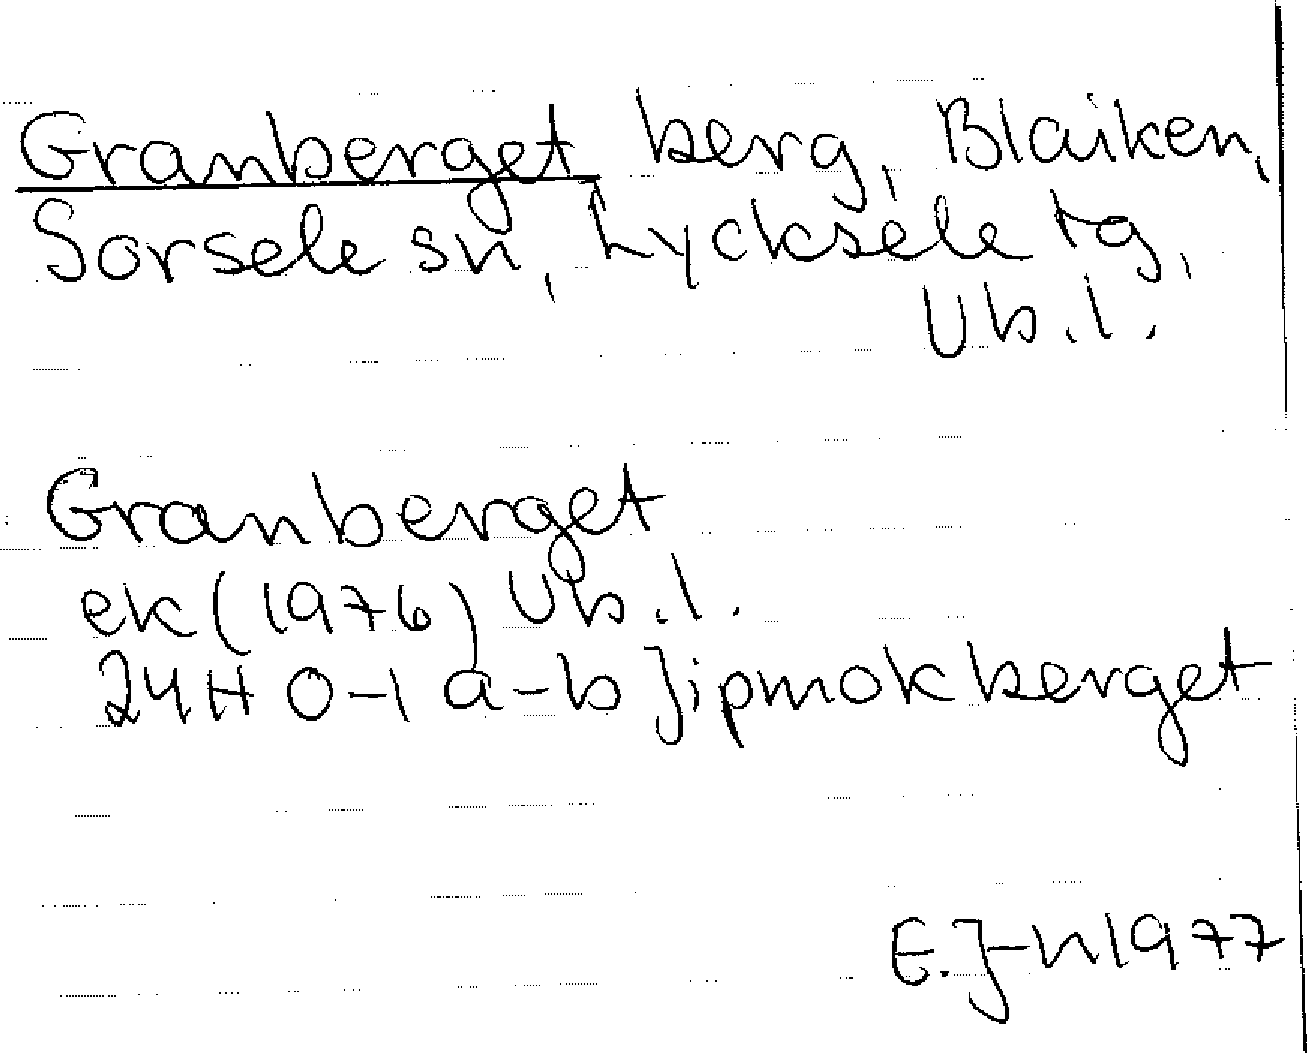 Granberget berg, Blaiken,
Sorsele sn, Lycksele tg,
Vb.l.
Granberget
ek (1976) Vb.l.
24H 0-1 a-b Jipmokberget
E.J-n 1977